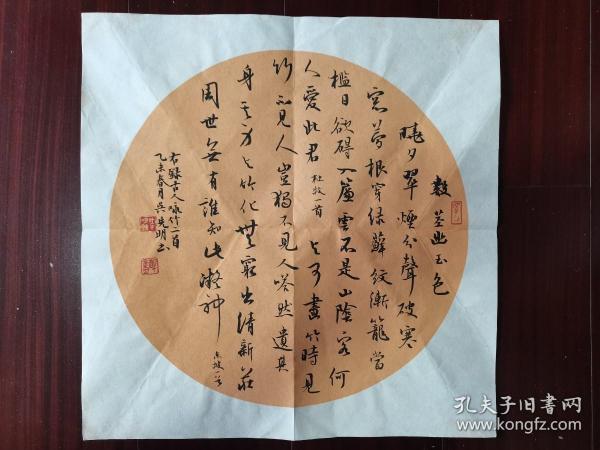 數莖幽玉色
曉夕翠煙分聲破寒
窓夢根穿綠蘚紋漸籠當
檻日欲礙入簾雲不是山陰客何
人愛此君 杜牧一首 与可畫竹時見
竹不見人豈獨不見人嗒然遺其
身其身与竹化無窮出清新莊
周世無有誰知此凝神 東坡一首
右録古人咏竹二首
乙未春月吴先明書
孔夫子旧书网
www.kongfz.com